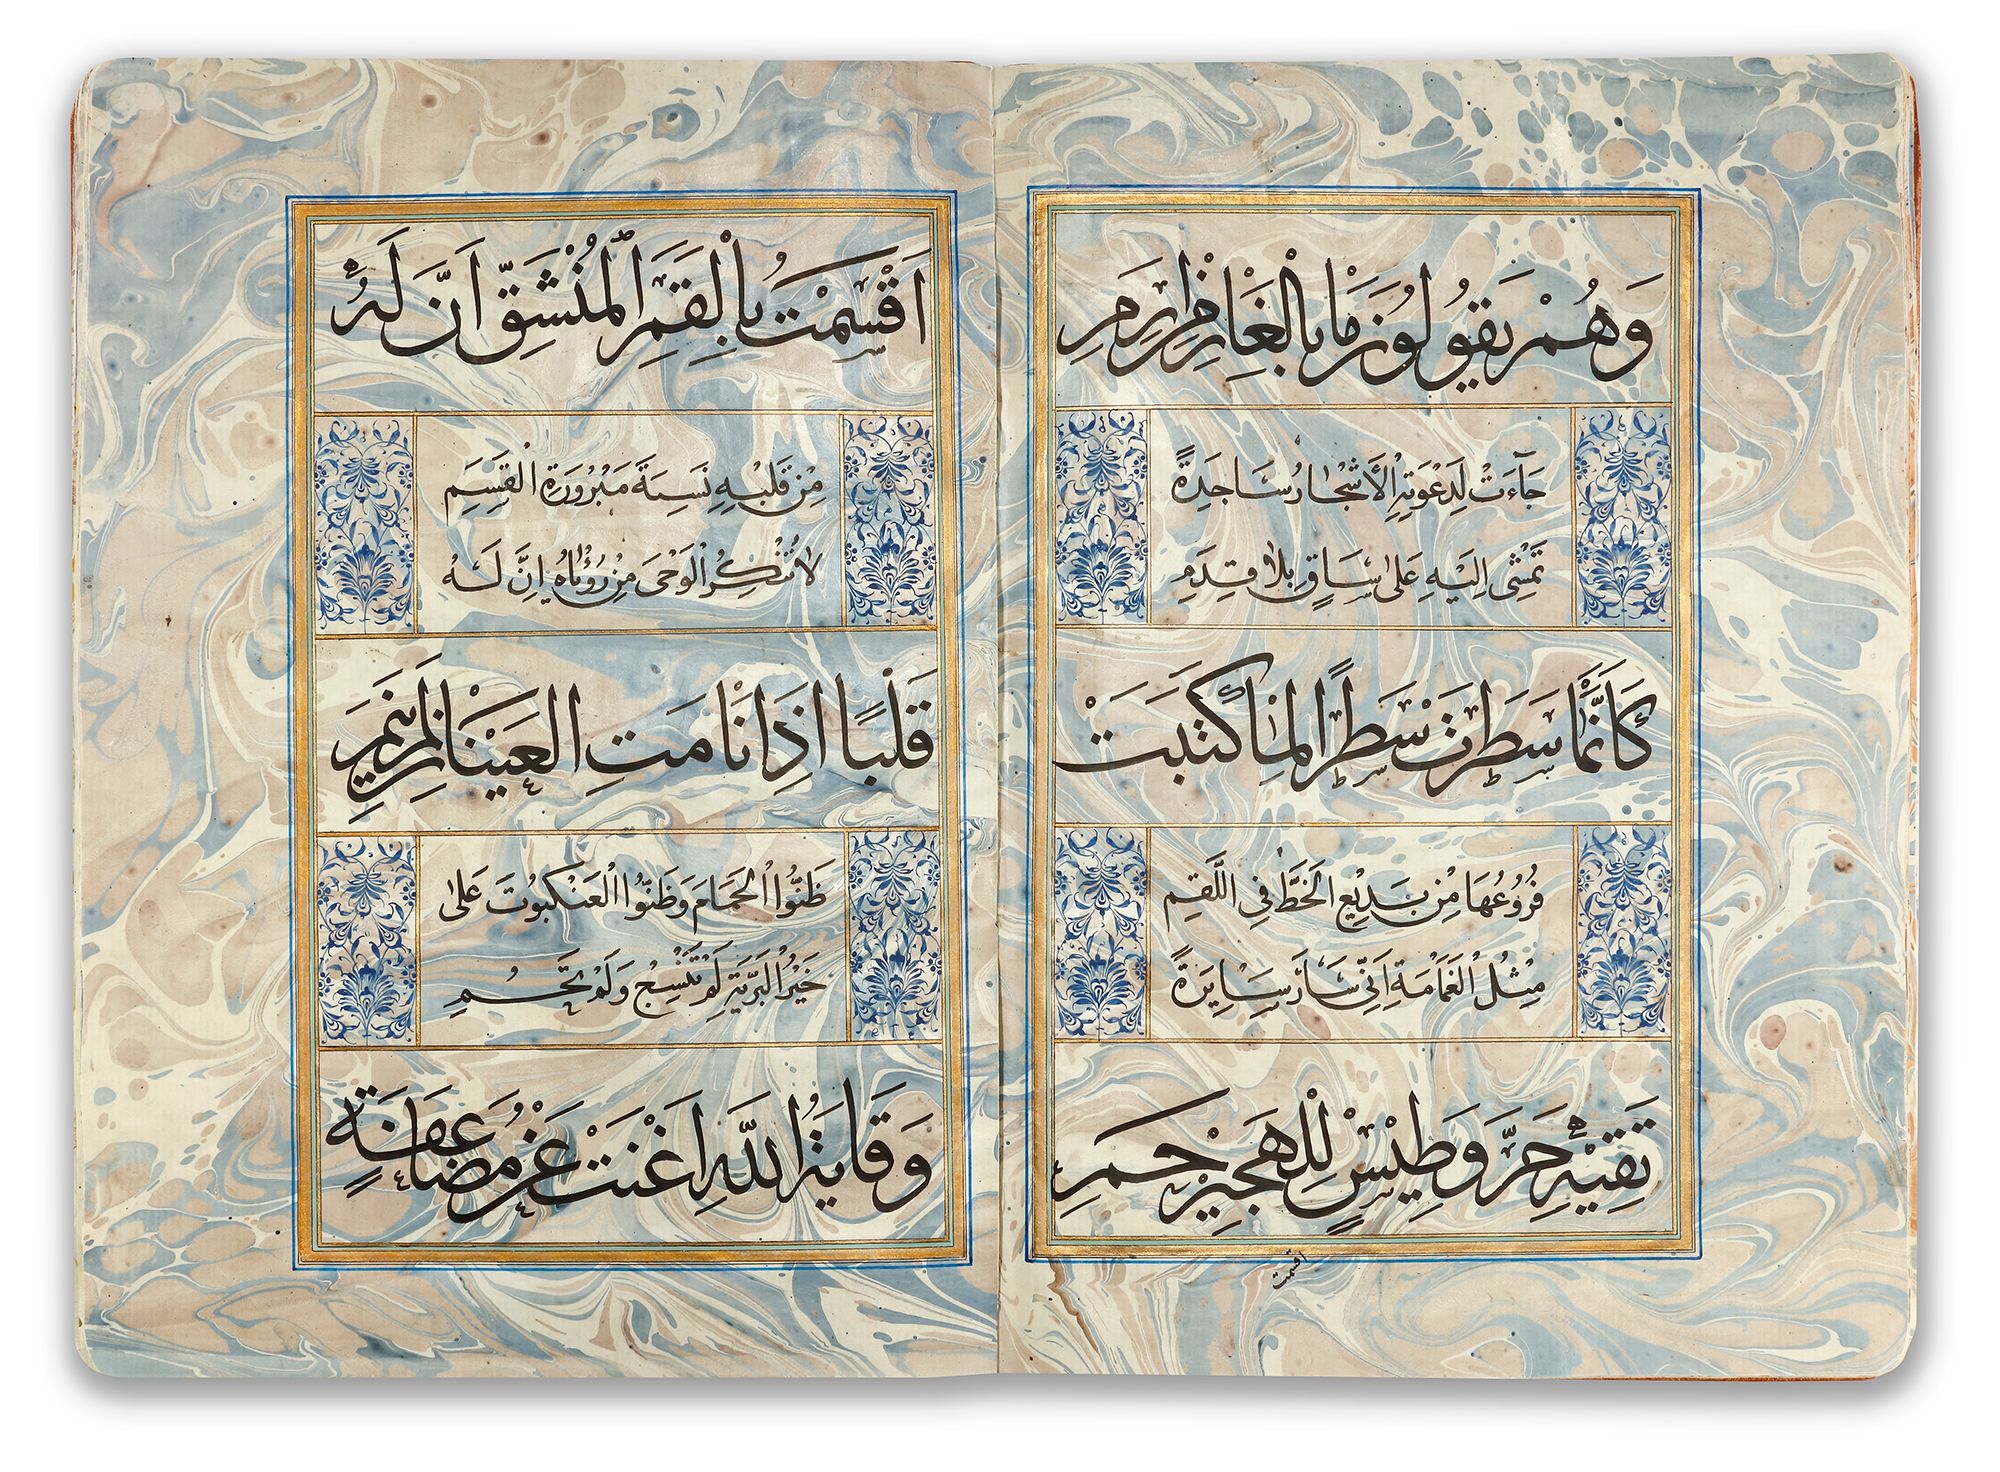 وَهُمْ يَقُولُونَ مَا بِالْغَارِ مِنْ اَرِمِ
جَآءَتْ لِدَعْوَتِهِ الْأَشْجَارُ سَاجِدَةً
تَمْشِى اِلَيْهِ عَلٰى سَاقٍ بِلَا قَدَمِ
كَاَنَّمَا سَطَرَتْ سَطْرًا لِمَا كَتَبَتْ
فُرُوعُهَا مِنْ بَدِيعِ الْخَطِّ فِى اللَّقَمِ
مِثْلُ الْغَمَامَةِ اَنّٰى سَارَ سَايِرَةً
تَقِيهِ حَرَّ وَطِيسٍ لِلْهَجِيرِ حَمِ
اقسمت
اَقْسَمْتُ بِالْقَمَرِ الْمُنْشَقِّ اَنَّ لَهُ
مِنْ قَلْبِهِ نِسْبَةً مَبْرُورَةَ الْقَسَمِ
لَا تُنْكِرِ الْوَحْىَ مِنْ رُؤْيَاهُ اِنَّ لَهُ
قَلْبًا اِذَا نَامَتِ الْعَيْنَانِ لَمْ يَنَمِ
ظَنُّوا الْحَمَامَ وَظَنُّوا الْعَنْكَبُوتَ عَلٰى
خَيْرِ الْبَرِيَّةِ لَمْ تَنْسِجْ وَلَمْ تَحُمِ
وِقَايَةُ اللّٰهِ اَغْنَتْ عَنْ مُضَاعَفَةٍ